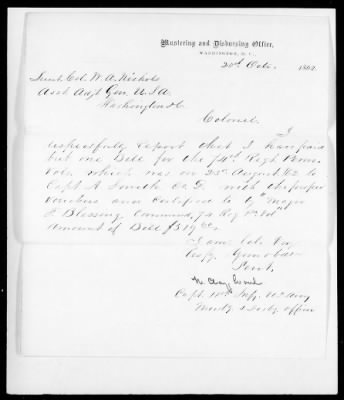 Mustering and Disbursing Office,
WASHINGTON, D. C.
20th Octr. 1862
Lieut. Col. W. A. Nichols
Asst Adjt Gen. U.S.A.
Washington D.C.
Colonel
I
respectfully report that I have paid
but one Bill for the 74th Regt Penn
Vols, which was on 23rd August 62 to
Capt A. Co. D. with the proper
vouchers and certified to by "Major
Blessing Command'g 74 Reg Pa Vol"
Amount of Bill $319
I am Col. Very
Respy
Servt.
Capt. Infy. U.S. Army
Mustg & Disbg Officer